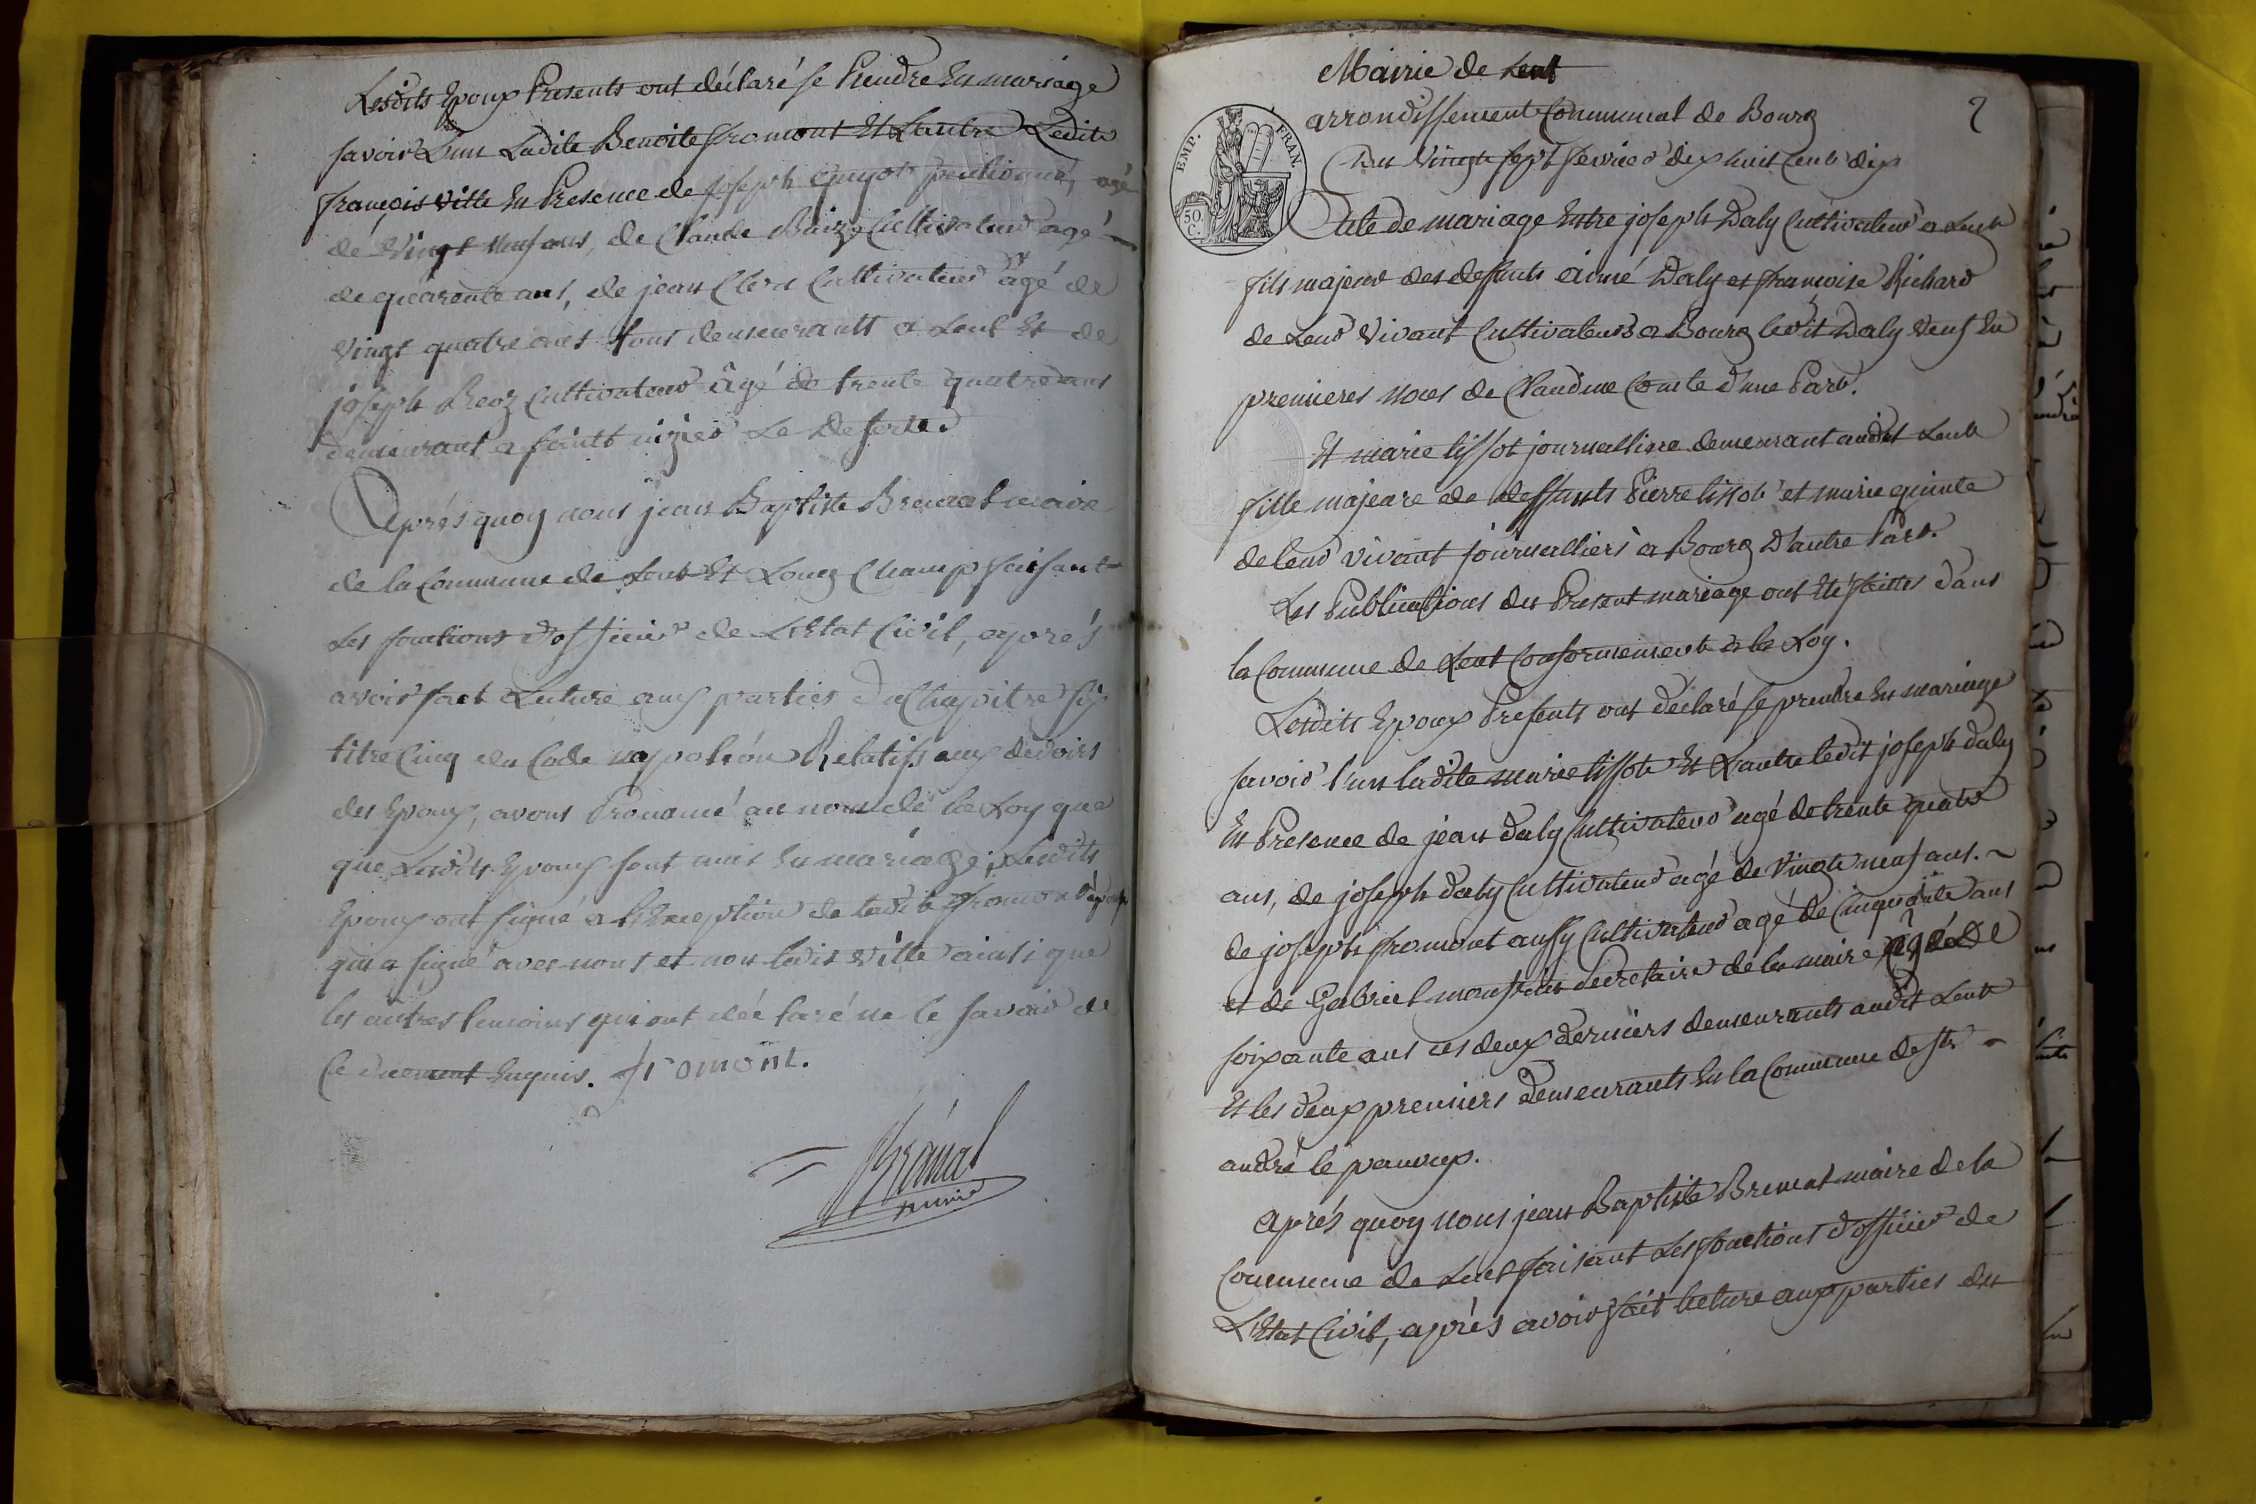 Lesdits Epoux Presents ont déclaré se Prendre En mariage
savoir L'un Ladite Benoite fromont Et Lautre Ledit
françois Ville En Presence de joseph guyot agé
de Vingt neuf ans, de Claude Cultivateur agé
de quarante ans, de jean Clerc Cultivateur agé de
Vingt quatre ans tous demeurants a Lent Et de
joseph Cultivateur âgé de trente quatre ans
demeurant a saint nizier Le Desert.
Après quoy nous jean Baptiste Brevat maire
de la Commune de Lent Et Long Champ faisant
Les fonctions d'officier de L'Etat Civil, après
avoir fait Lecture aux parties du Chapitre six
titre Cinq du Code napoléon Relatifs aux devoirs
des Epoux, avons Prononcé au nom de la Loy que
que Lesdits Epoux sont unis En mariage; Lesdits
Epoux ont signé a L'Exception de ladite fromont
qui a signé avec nous et non ledit Ville ainsi que
les autres temoins qui ont déclaré ne le savoir de
Ce duement Enquis. fromont.
maire
Mairie de Lent
2
arrondissement Communal de Bourg
EMP. FRAN.
50 C.
Du Vingt sept fevrier dix huit Cent dix
Acte de mariage Entre joseph Daly Cultivateur a Lent
fils majeur des deffunts aimé Daly et françoise Richard
de Leur Vivant Cultivateurs a Bourg ledit Daly Veuf En
premieres noces de Claudine Comte d'une Part.
Et marie tissot journalliere demeurant audit Lent
fille majeure de deffunts Pierre tissot et marie
de leur vivant journalliers a Bourg D'autre Part.
Les Publications du Present mariage ont Eté faittes dans
la Commune de Lent Conformement a la Loy.
Lesdits Epoux Presents ont déclaré se prendre En mariage
savoir l'un ladite marie tissot Et Lautre ledit joseph daly
En Presence de jean daly Cultivateur agé de trente quatre
ans, de joseph daly Cultivateur agé de Vingt neuf ans.
de joseph fromont aussy Cultivateur agé de Cinquante ans
et de Gabriel secretaire de la mairie agé de
soixante ans ces deux derniers demeurants audit Lent
Et les deux premiers demeurants En la Commune de St
andré le panoux.
après quoy nous jean Baptiste Brevat maire de la
Commune de Lent faisant Les fonctions d'officier de
L'Etat Civil, après avoir fait lecture aux parties du